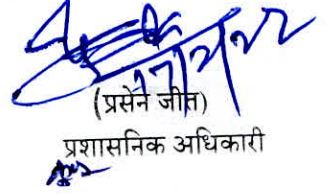 (प्रसेन जीत)
प्रशासनिक अधिकारी